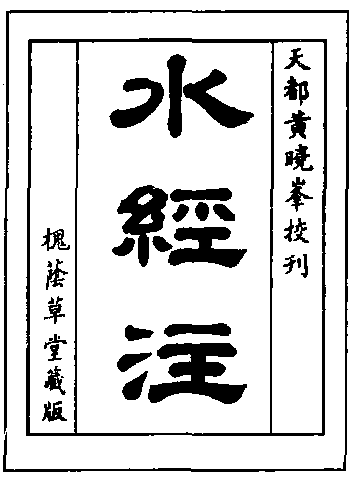 天都黄曉峯挍刋
水經注
槐蔭草堂藏版